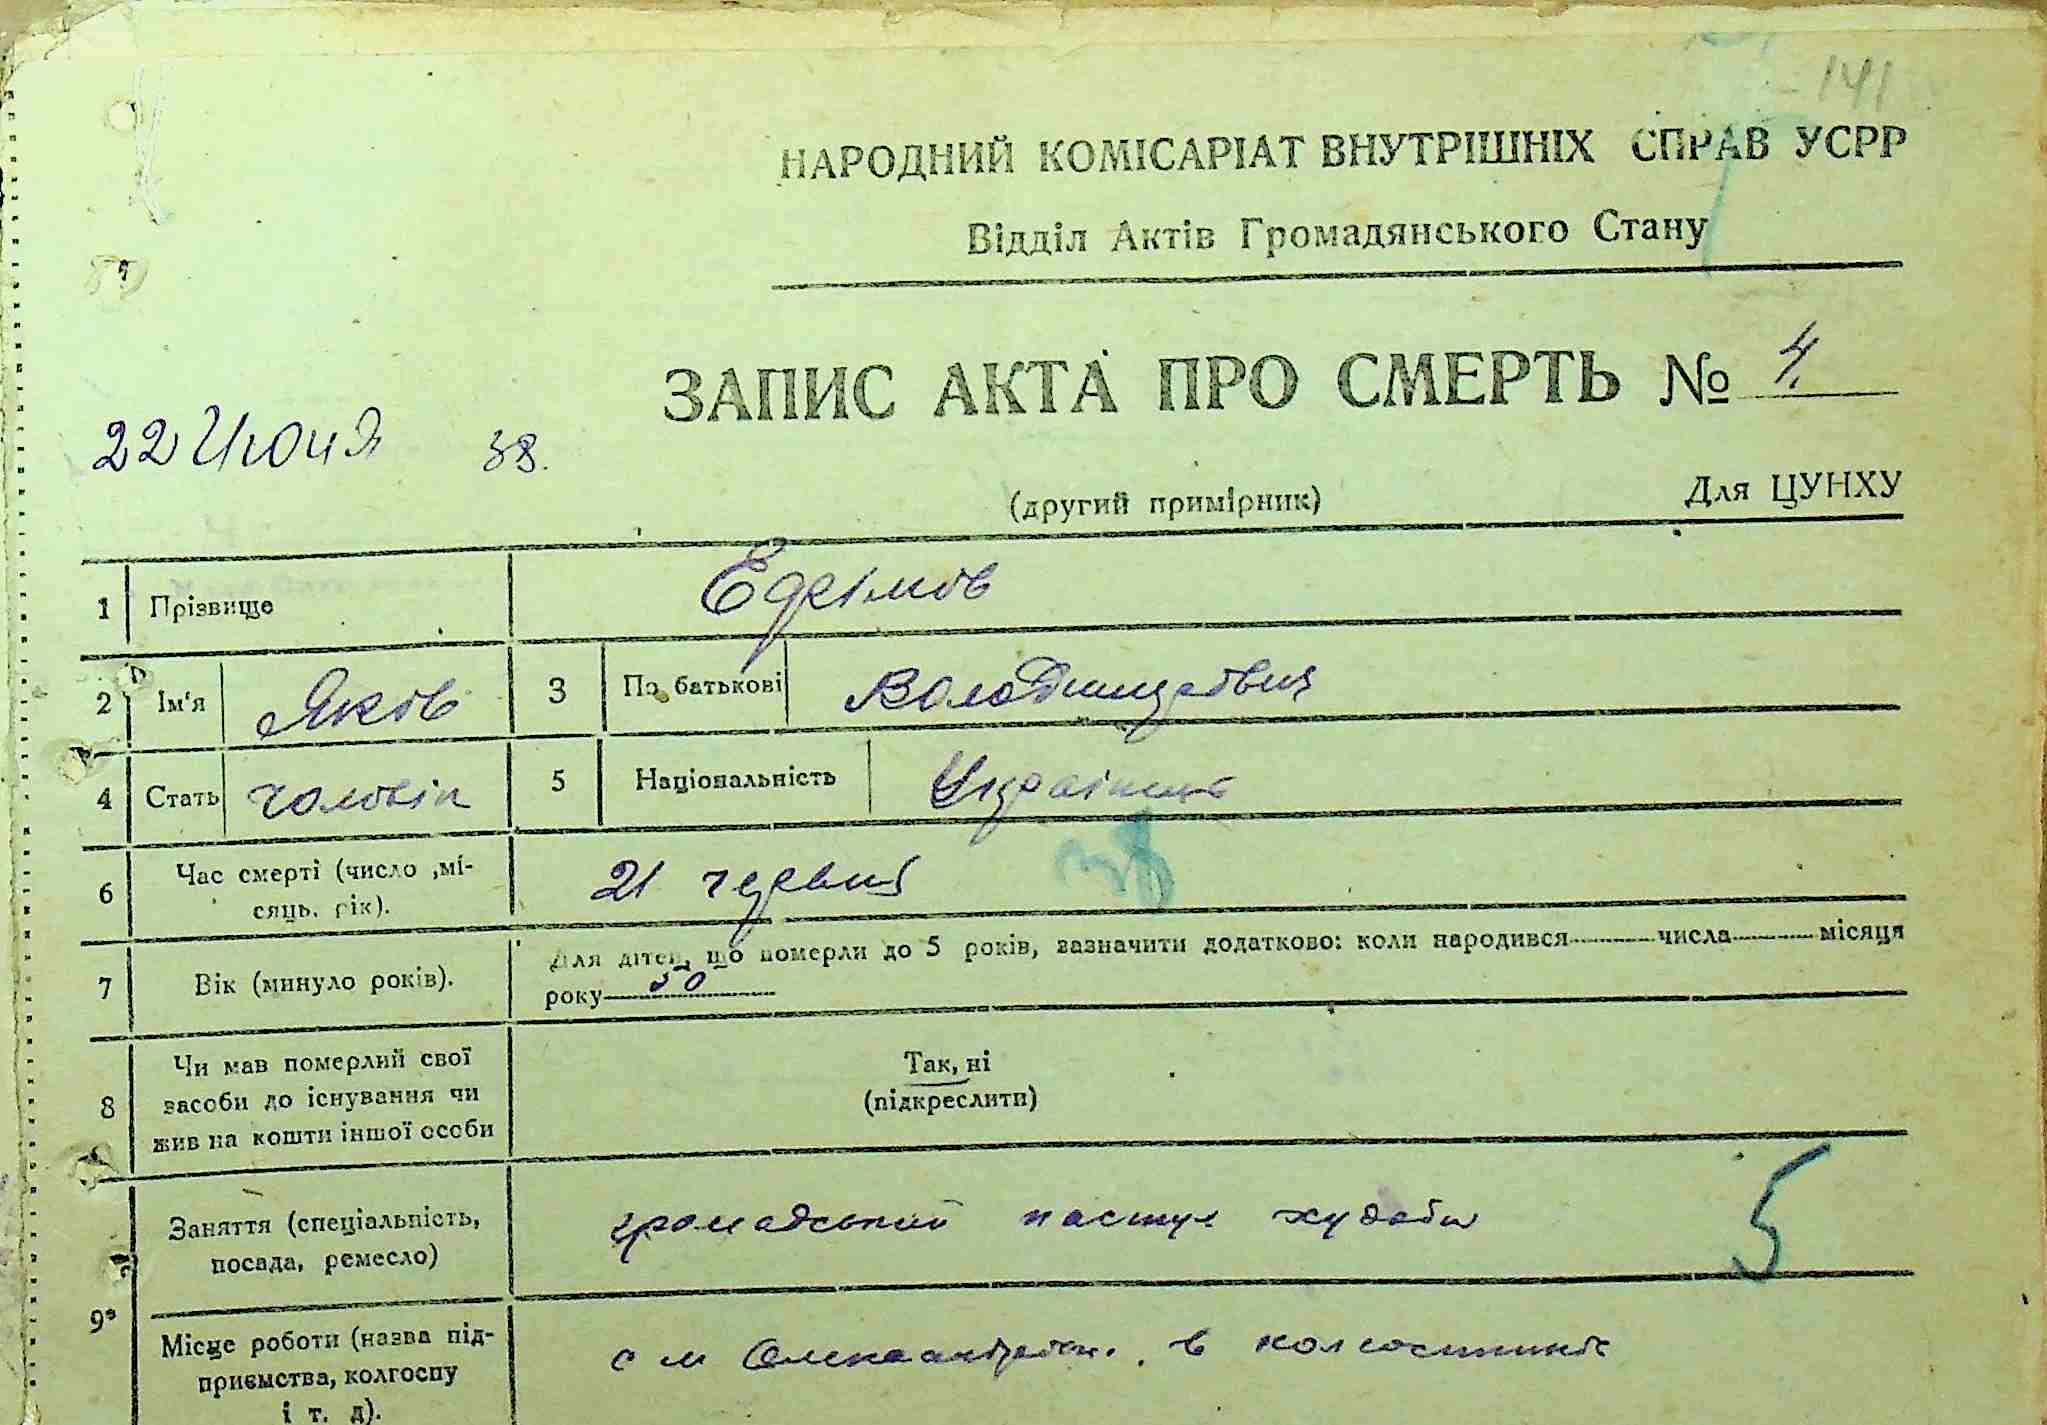 141
НАРОДНИЙ КОМІСАРІАТ ВНУТРІШНІХ СПРАВ УСРР
Відділ Актів Громадянського Стану
ЗАПИС АКТА ПРО СМЕРТЬ № 4.
22 Июня 38.
(другий примірник) Для ЦУНХУ
1 Прізвище Ефімов
2 Ім'я Яков 3 По батькові Володимирович
4 Стать чоловік 5 Національність Українець
6 Час смерті (число ,мі-
сяць. рік). 21 червня 38
7 Вік (минуло років). Для дітей, що померли до 5 років, зазначити додатково: коли народився числа місяця
року 50
8 Чи мав померлий свої
засоби до існування чи
жив на кошти іншої особи
Так, ні
(підкреслити)
Заняття (спеціальність,
посада, ремесло)
громадський пастух худоби 5
9
Місце роботи (назва під-
приємства, колгоспу
і т. д).
с м в колгоспників